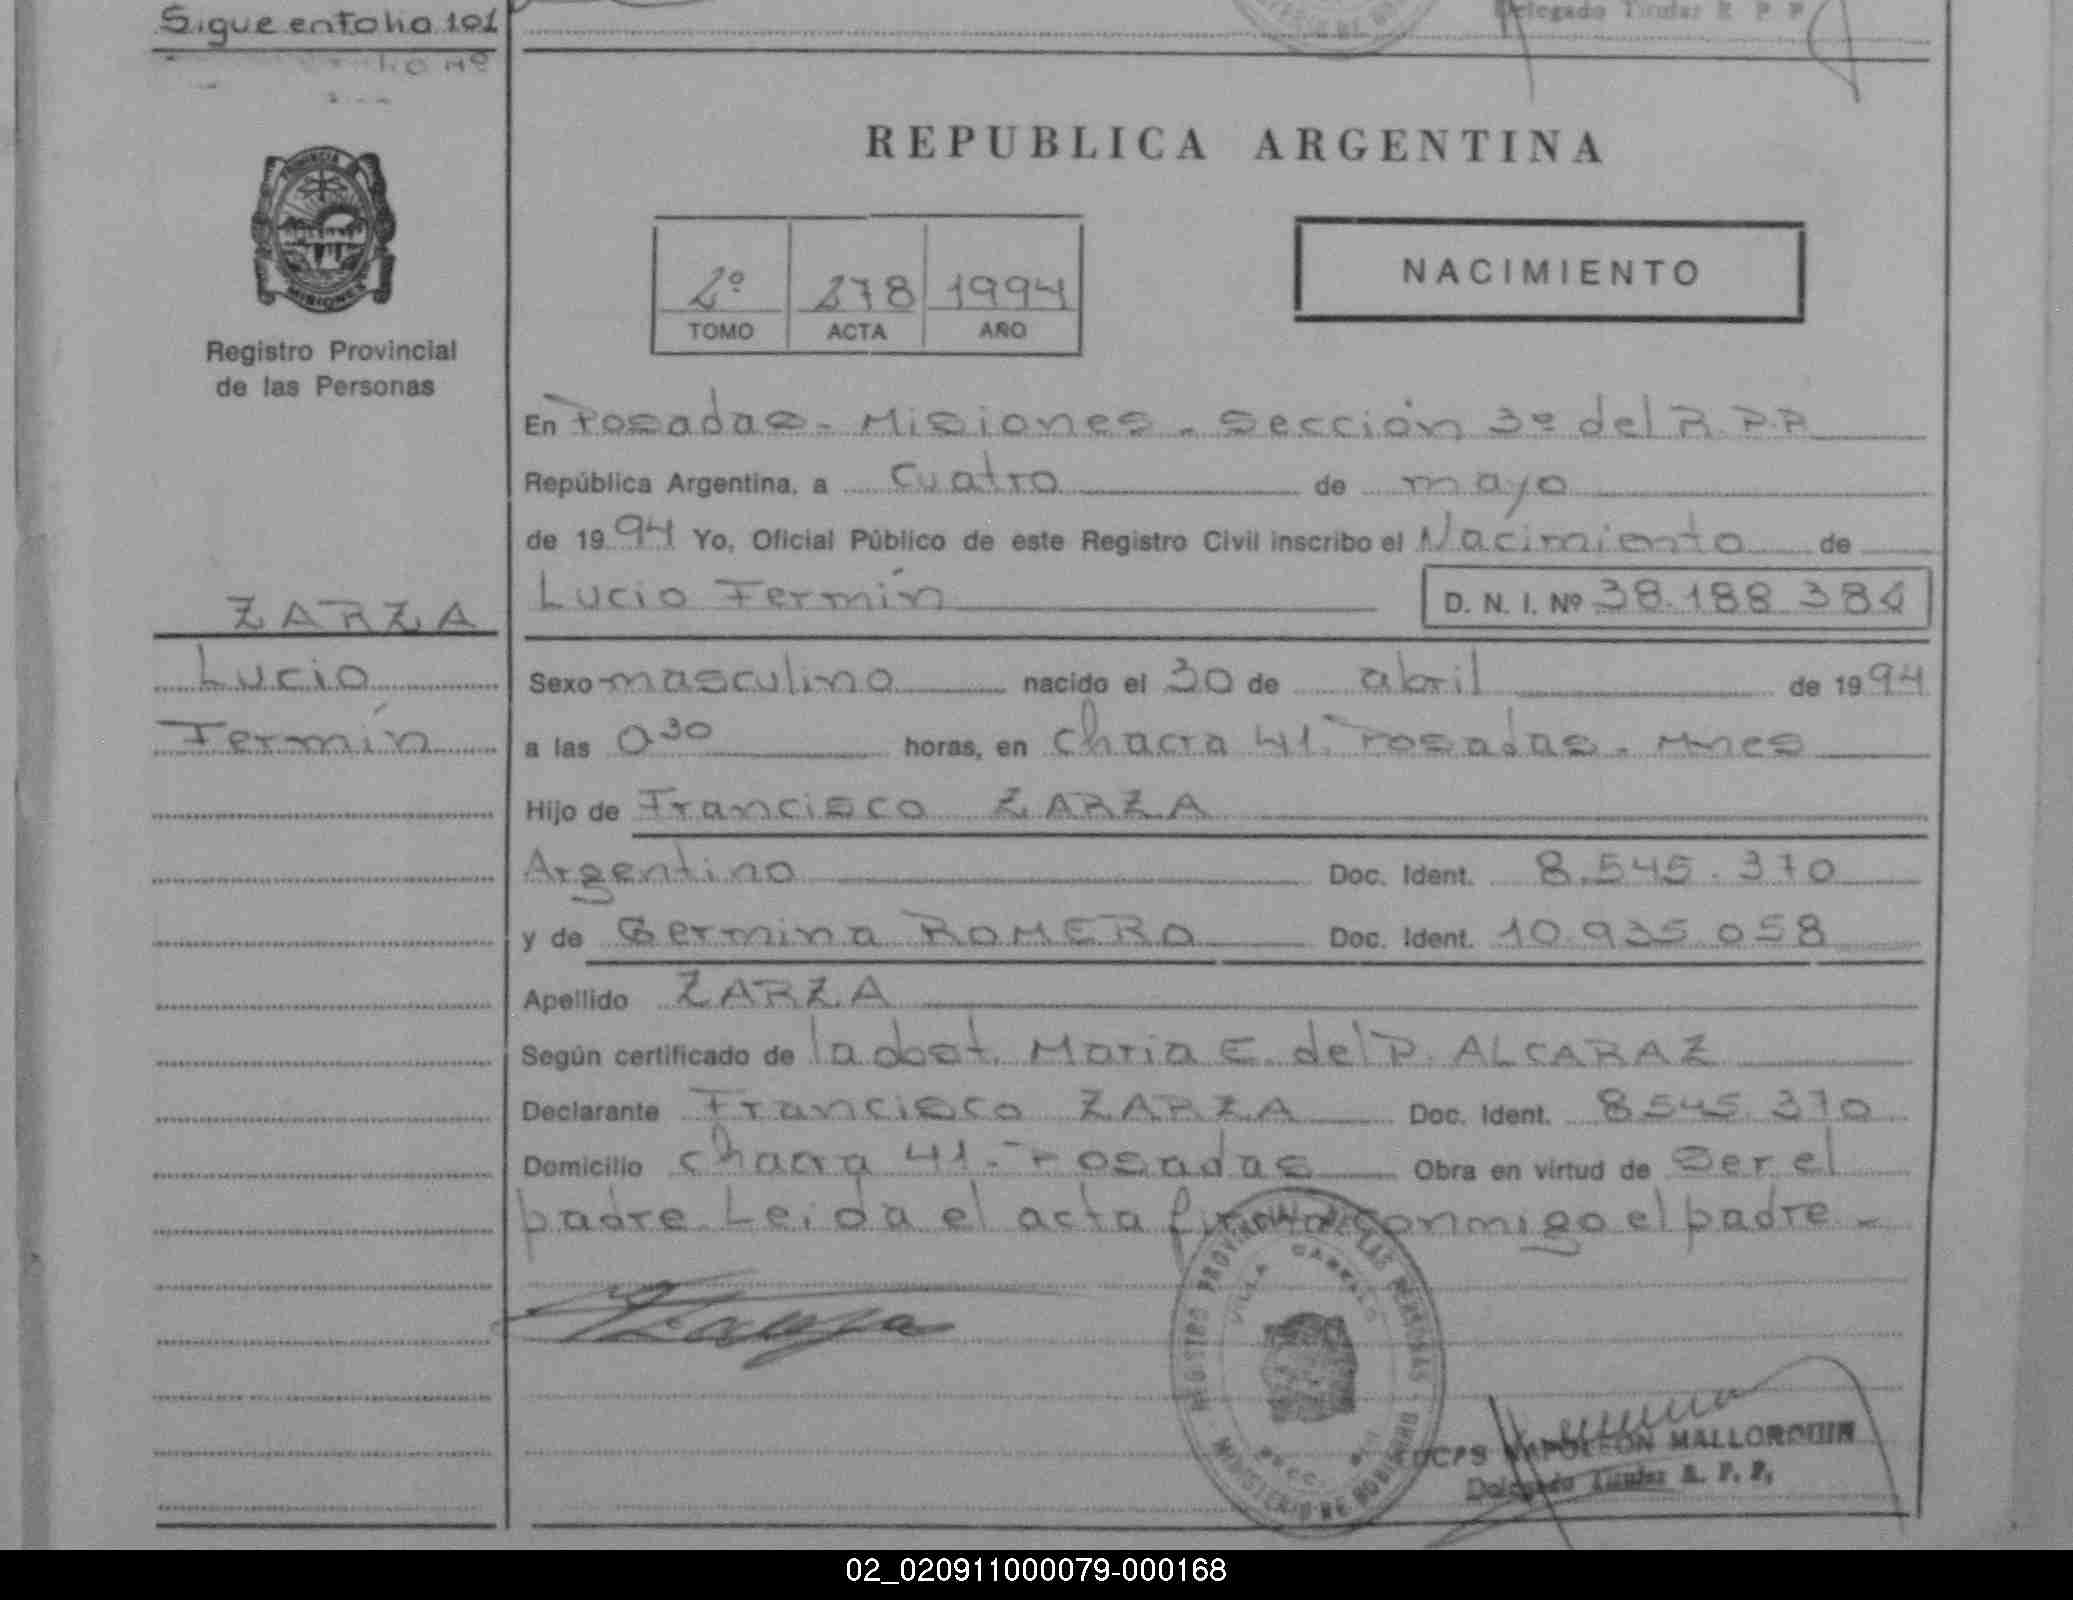 Sigue en folio 101
Delegado Titular R. P. P.
REPUBLICA ARGENTINA
PROVINCIA
MISIONES
Registro Provincial
de las Personas
2º 278 1994
TOMO ACTA AÑO
NACIMIENTO
En Posadas - Misiones - Sección 3º del R.P.P.
República Argentina, a cuatro de mayo
de 1994 Yo, Oficial Público de este Registro Civil inscribo el Nacimiento de
Lucio Fermín D. N. I. Nº 38.188.384
ZARZA
Lucio
Fermín
Sexo masculino nacido el 30 de abril de 1994
a las 0 30 horas, en chacra 41. Posadas - Mnes
Hijo de Francisco ZARZA
Argentino Doc. Ident. 8.545.370
y de Germina ROMERO Doc. Ident. 10.935.058
Apellido ZARZA
Según certificado de la obst. Maria E. del P. ALCARAZ
Declarante Francisco ZARZA Doc. Ident. 8545.370
Domicilio chacra 41 - Posadas Obra en virtud de Ser el
padre. Leida el acta firma conmigo el padre -
REGISTRO PROVINCIAL DE LAS PERSONAS
VILLA CABELLO
MINISTERIO DE GOBIERNO
NAPOLEON MALLORQUIN
Delegado Titular R. P. P.
02_020911000079-000168